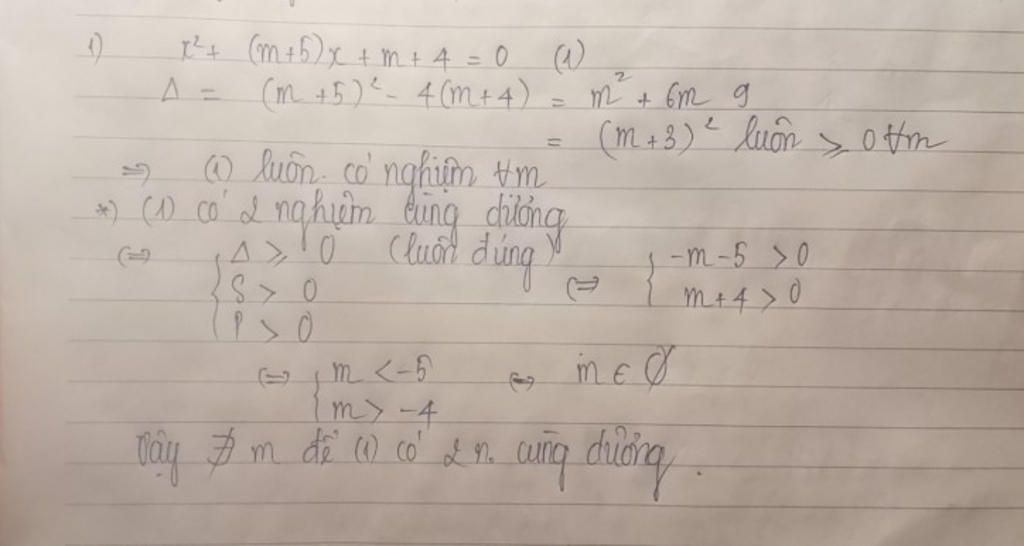 1) x² + (m+5)x + m + 4 = 0 (1)
Δ = (m+5)² - 4(m+4) = m² + 6m 9
= (m+3)² luôn ⩾ 0 ∀m
⇒ (1) luôn có nghiệm ∀m
*) (1) có 2 nghiệm cùng dương
⇔ { Δ ⩾ 0 (luôn đúng) ⇔ { -m-5 > 0
S > 0 m+4 > 0
P > 0
⇔ { m < -5 ⇔ m ∈ ∅
m > -4
Vậy ∄ m để (1) có 2 n. cùng dương.